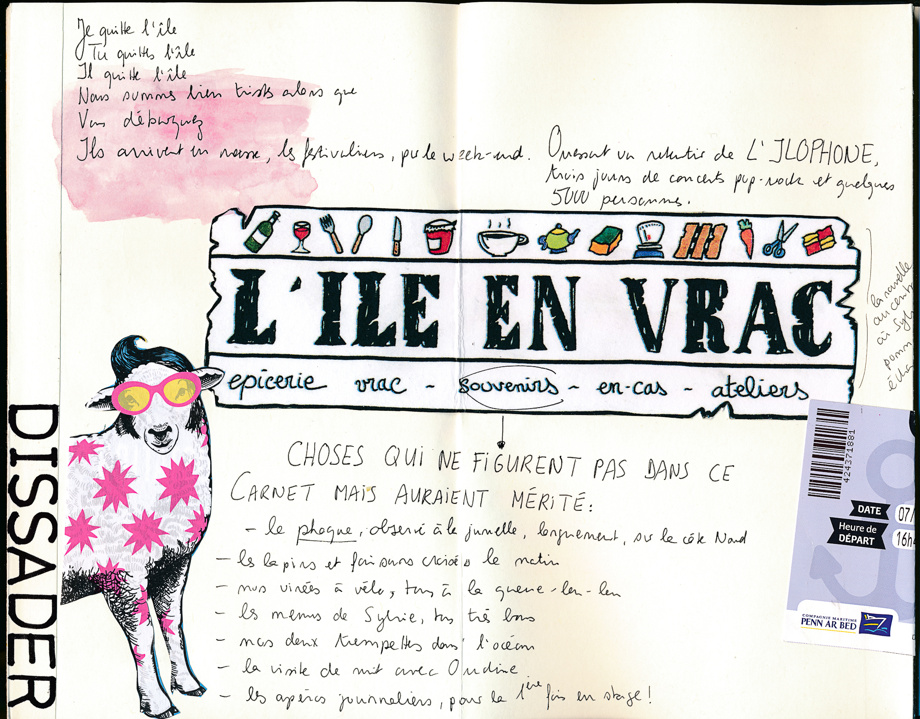 Je quitte l'île
Tu quittes l'île
Il quitte l'île
Nous sommes bien tristes alors que
Vous débarquez
Ils arrivent en masse, les festivaliers, pour le week-end.
Ouessant va retentir de L'ILOPHONE,
trois jours de concerts pop-rock et quelques
5000 personnes.
L'ILE EN VRAC
épicerie vrac - souvenirs - en-cas - ateliers
la nouvelle
au centre
à Sylvie
DISSADER
CHOSES QUI NE FIGURENT PAS DANS CE
CARNET MAIS AURAIENT MÉRITÉ:
- le phoque, observé à la jumelle, longuement, sur la côte Nord
- les lapins et faisans croisés le matin
- nos virées à vélo, tous à la queue-leu-leu
- les menus de Sylvie, tous très bons
- mes deux trempettes dans l'océan
- la visite de nuit avec Ondine
- les apéros journaliers, pour la 1ère fois en stage!
424371881
DATE 07/
Heure de
DÉPART 16h
COMPAGNIE MARITIME
PENN AR BED